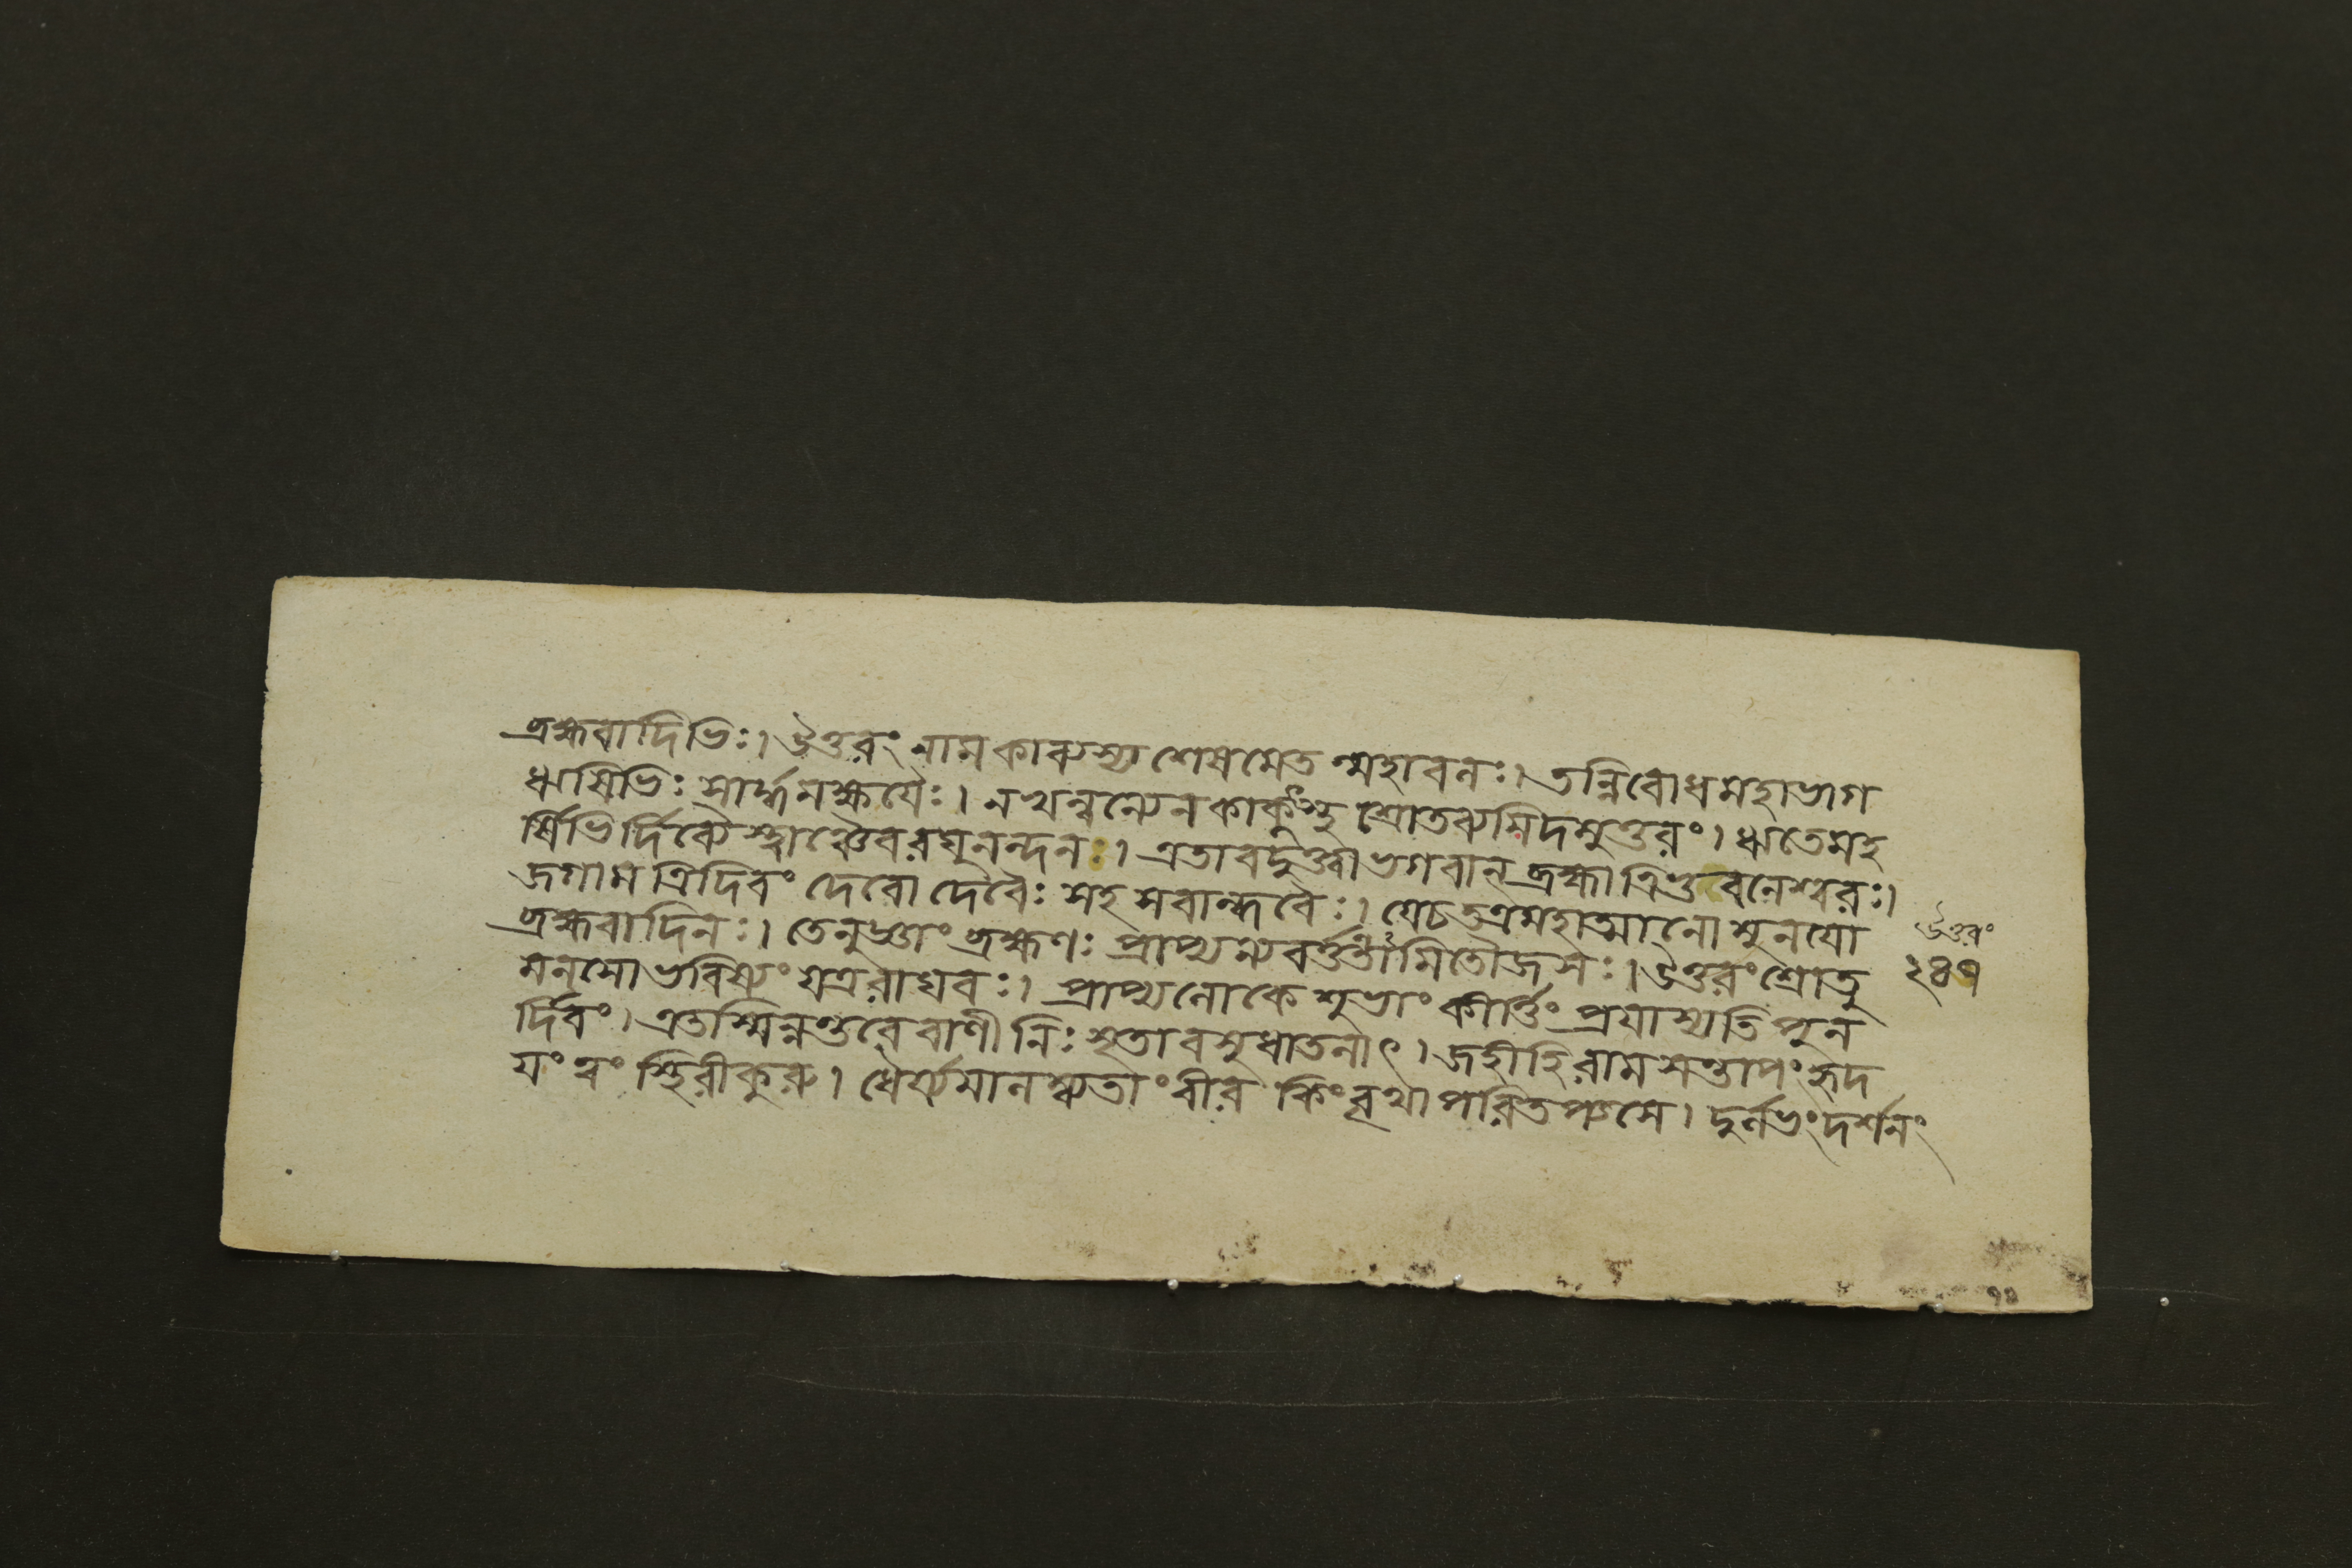 ব্রহ্মবাদিভিঃ। উত্তরং নাম কাব্যস্য শেষমেত ন্মহাবনঃ। তন্নিবোধ মহাভাগ
ঋষিভিঃ সার্দ্ধমক্ষযৈঃ। ন খল্বন্যেন কাকুৎস্থ শ্রোতব্যমিদমুত্তরং। ঋতে মহ
র্ষিভির্দিব্যৈ স্ত্বাঞ্চৈব রঘুনন্দনঃ। এতাবদুক্ত্বা ভগবান্ ব্রহ্মা ত্রিভুবনেশ্বরঃ।
জগাম ত্রিদিবং দেবো দেবৈঃ সহ সবান্ধবৈঃ। যে চ তত্র মহাত্মানো মুনযো
ব্রহ্মবাদিনঃ। তেনুজ্ঞাং ব্রহ্মণঃ প্রাপ্য ন্যবর্ত্তন্তামিতৌজসঃ। উত্তরং শ্রোতু
মনসো ভবিষ্যং যত্র রাঘবঃ। প্রাপ্য লোকে শুভাং কীর্ত্তিং প্রযাস্যতি পুন
র্দিবং। এতস্মিন্নন্তরে বাণী নিঃসৃতা বসুধাতলাৎ। জহীহি রাম সন্তাপং হৃদ
যং ত্বং স্থিরীকুরু। ধৈর্য্যমালম্ব্যতাং বীর কিং বৃথা পরিতপ্যসে। দুর্লভং দর্শনং
উত্তরং
২৪৭